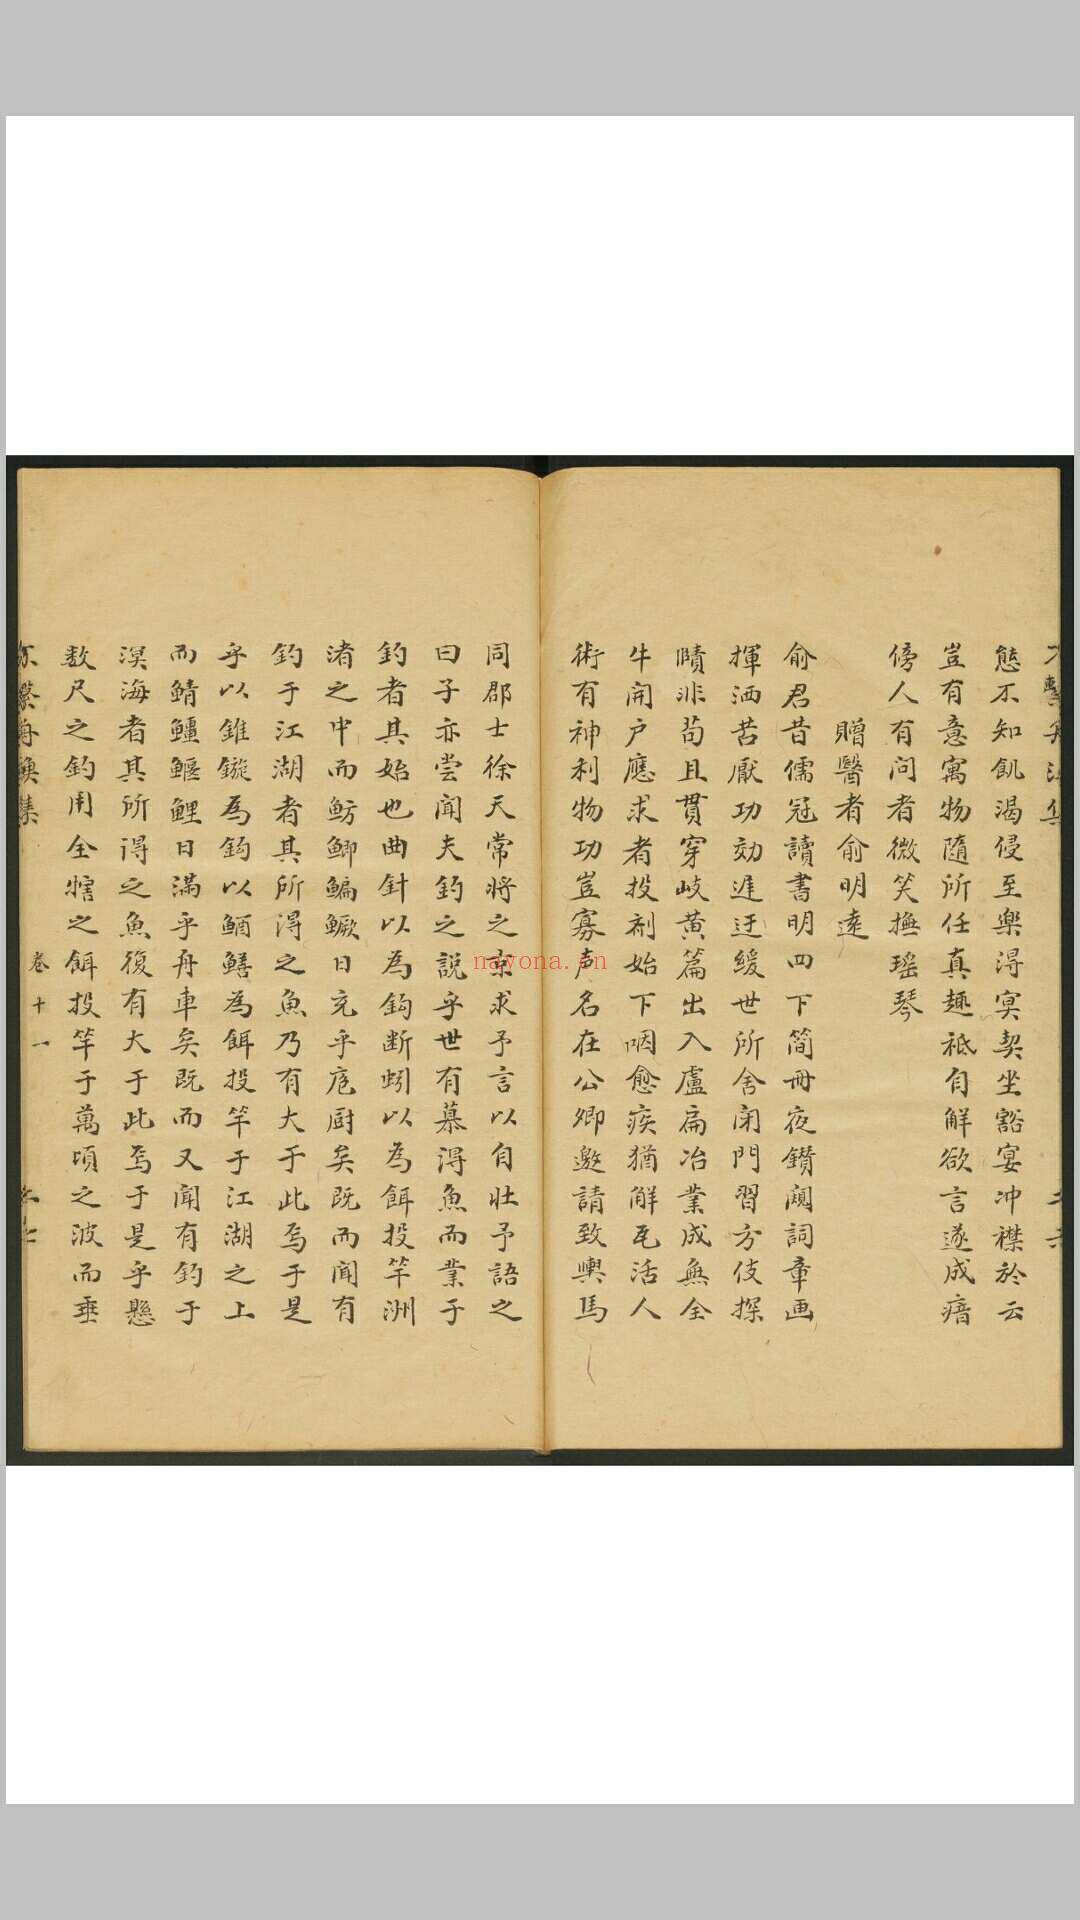 態不知飢渴侵至樂得冥契坐豁宴冲襟於云
豈有意寓物隨所任真趣祗自解欲言遂成瘖
傍人有问者微笑撫瑶琴
贈醫者俞明逺
俞君昔儒冠讀書明四下简冊夜鑽闚詞章画
揮洒苦厭功効遅迂緩世所舍闭門習方伎探
賾非苟且貫穿岐黄篇出入盧扁冶業成無全
牛開户應求者投剤始下咽愈疾猶解瓦活人
術有神利物功豈寡声名在公卿邀請致輿馬
同郡士徐天常将之京求予言以自壮予語之
曰子亦尝闻夫釣之説乎世有慕得魚而業于
釣者其始也曲針以為鈎断蚓以為餌投竿洲
渚之中而魴鯽鯿鱖日充乎庖厨矣既而闻有
釣于江湖者其所得之魚乃有大于此焉于是
乎以錐鏇為鈎以鰌鱔為餌投竿于江湖之上
而鯖鱣鰋鯉日滿乎舟車矣既而又闻有釣于
溟海者其所得之魚復有大于此焉于是乎懸
数尺之釣用全犗之餌投竿于萬頃之波而垂
卷十一
nayona.cn